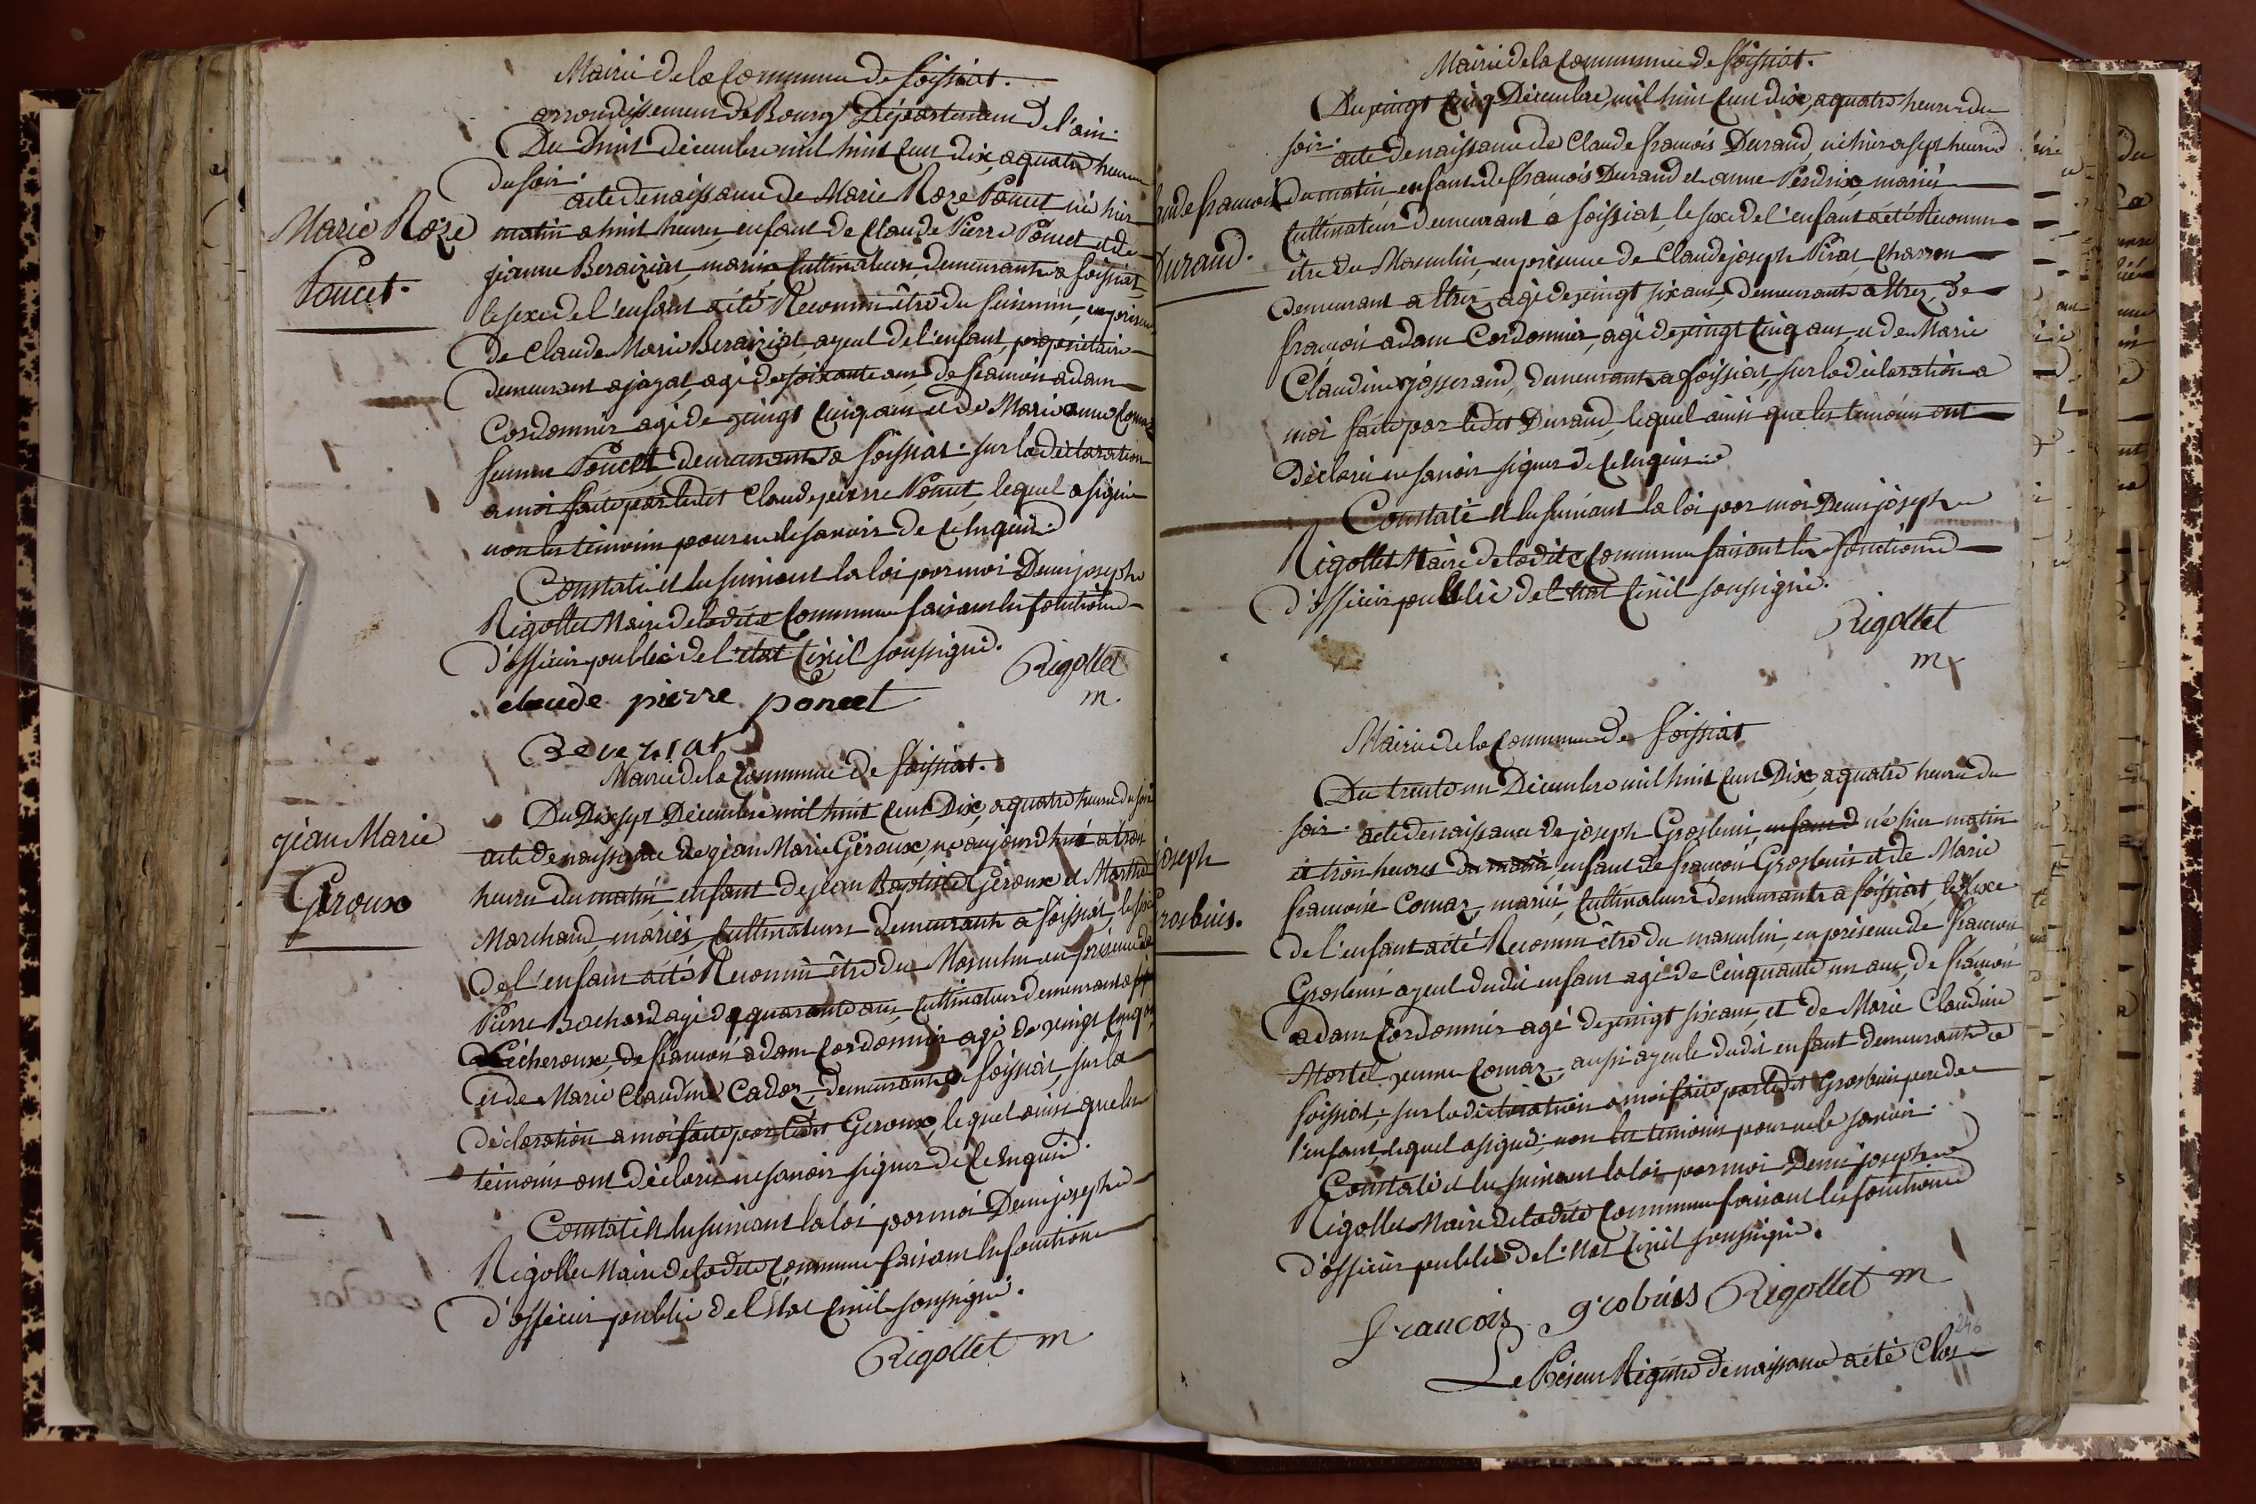 Mairie de la Commune de foissiat.
arrondissement de Bourg Département de l'ain.
Du huit décembre mil huit Cent dix, a quatre heures
du soir.
acte de naissance de Marie Roze Poncet née hier
Marie Roze
Poncet.
matin a huit heures, enfant de Claude Pierre Poncet et de
jeanne Beraiziat, mariés, Cultivateurs, demeurants a foissiat,
le sexe de l'enfant a été Reconnu être du feminin, en présence
de Claude Marie Beraiziat, ayeul de l'enfant, propriétaire
demeurant a jayat, agé de soixante ans, de françois adam
Cordonnier agé de vingt Cinq ans et de Marie anne
femme Poncet, demeurants a foissiat. sur la déclaration
a moi faite par ledit Claude pierre Poncet, lequel a signé
non les témoins pour ne le savoir de Ce Enquis.
Constaté et lu suivant la loi par moi Denis joseph
Rigollet Maire de ladite Commune faisant les fonctions
d'officier public de l'état Civil soussigné.
Rigollet
m.
claude pierre poncet
Beverziat
Mairie de la Commune de foissiat.
Du Dix sept Décembre mil huit Cent Dix, a quatre heures du soir
acte de naissance de jean Marie Géroux, né aujourd'hui a trois
jean Marie
Géroux
heures du matin, enfant de jean Baptiste Géroux et Marthe
Marchand, mariés, Cultivateurs demeurants a foissiat, le sexe
de l'enfant a été Reconnu être du Masculin en présence de
Pierre Bochard agé de quarante ans, Cultivateur demeurant a
Lécheroux, de françois adam Cordonnier agé de vingt Cinq ans,
et de Marie Claudine Cadoz, demeurants a foissiat, sur la
déclaration a moi faite par ledit Geroux, lequel ainsi que les
témoins ont déclaré ne savoir signer de Ce Enquis.
Constaté et lu suivant la loi par moi Denis joseph
Rigollet Maire de ladite Commune faisant les fonctions
d'officier public de l'état Civil soussigné.
Rigollet m
Mairie de la Commune de foissiat.
Du vingt Cinq Décembre, mil huit Cent dix, a quatre heures du
soir.
acte de naissance de Claude françois Durand, né hier a sept heures
ude françois
Durand.
du matin, enfant de françois Durand et anne Perdrix, mariés
Cultivateurs demeurant a foissiat, le sexe de l'enfant a été Reconnu
être du Masculin, en présence de Claude joseph Pirat, Charron
demeurant a Etrez, agé de vingt six ans, demeurants a Etrez, de
françois adam Cordonnier, agé de vingt Cinq ans, et de Marie
Claudine josserand, demeurants a foissiat, sur la déclaration a
moi faite par ledit Durand, lequel ainsi que les témoins ont
Déclaré ne savoir signer de Ce Enquis.
Constaté et lu suivant la loi par moi Denis joseph
Rigollet Maire de ladite Commune faisant les fonctions
d'officier public de l'état Civil soussigné.
Rigollet
m
Mairie de la Commune de foissiat
Du trente un Décembre mil huit Cent Dix, a quatre heures du
soir. acte de naissance de joseph Grosbuis, enfant d né hier matin
joseph
rosbuis.
et trois heures du matin enfant de françois Grosbuis et de Marie
françoise Comaz, mariés, Cultivateurs demeurants a foissiat, le sexe
de l'enfant a été Reconnu être du masculin, en présence de françois
Grosbuis ayeul dudit enfant agé de Cinquante un ans, de françois
adam Cordonnier agé de vingt six ans, et de Marie Claudine
Mortel, veuve Comaz, aussi ayeule dudit enfant demeurants a
foissiat, sur la déclaration a moi faite par ledit Grosbuis pere de
l'enfant, lequel a signé, non les témoins pour ne le savoir.
Constaté et lu suivant la loi par moi Denis joseph
Rigollet Maire de ladite Commune faisant les fonctions
d'officier public de l'état Civil soussigné.
francois grobuis Rigollet m
246
Le Présent Régistre de naissance a été Clos